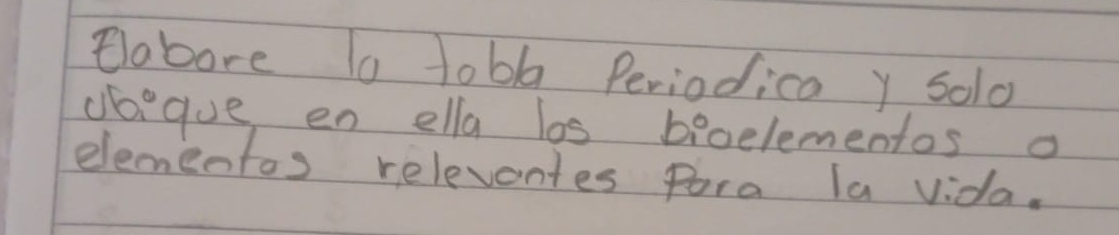 Elabore la tabla Periodica y solo
ubique en ella los bioelementos o
elementos relevantes Para la vida.